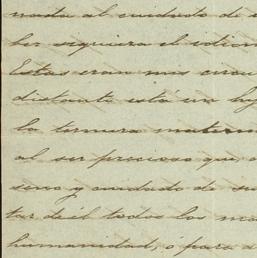 nada al cuidado de s
ber siquiera el idiom
Estas eran mis circu
distante está un hij
la ternura materna
al ser precioso que a
seno y cuidado de su
tar de él todos los ma
humanidad, ó para d